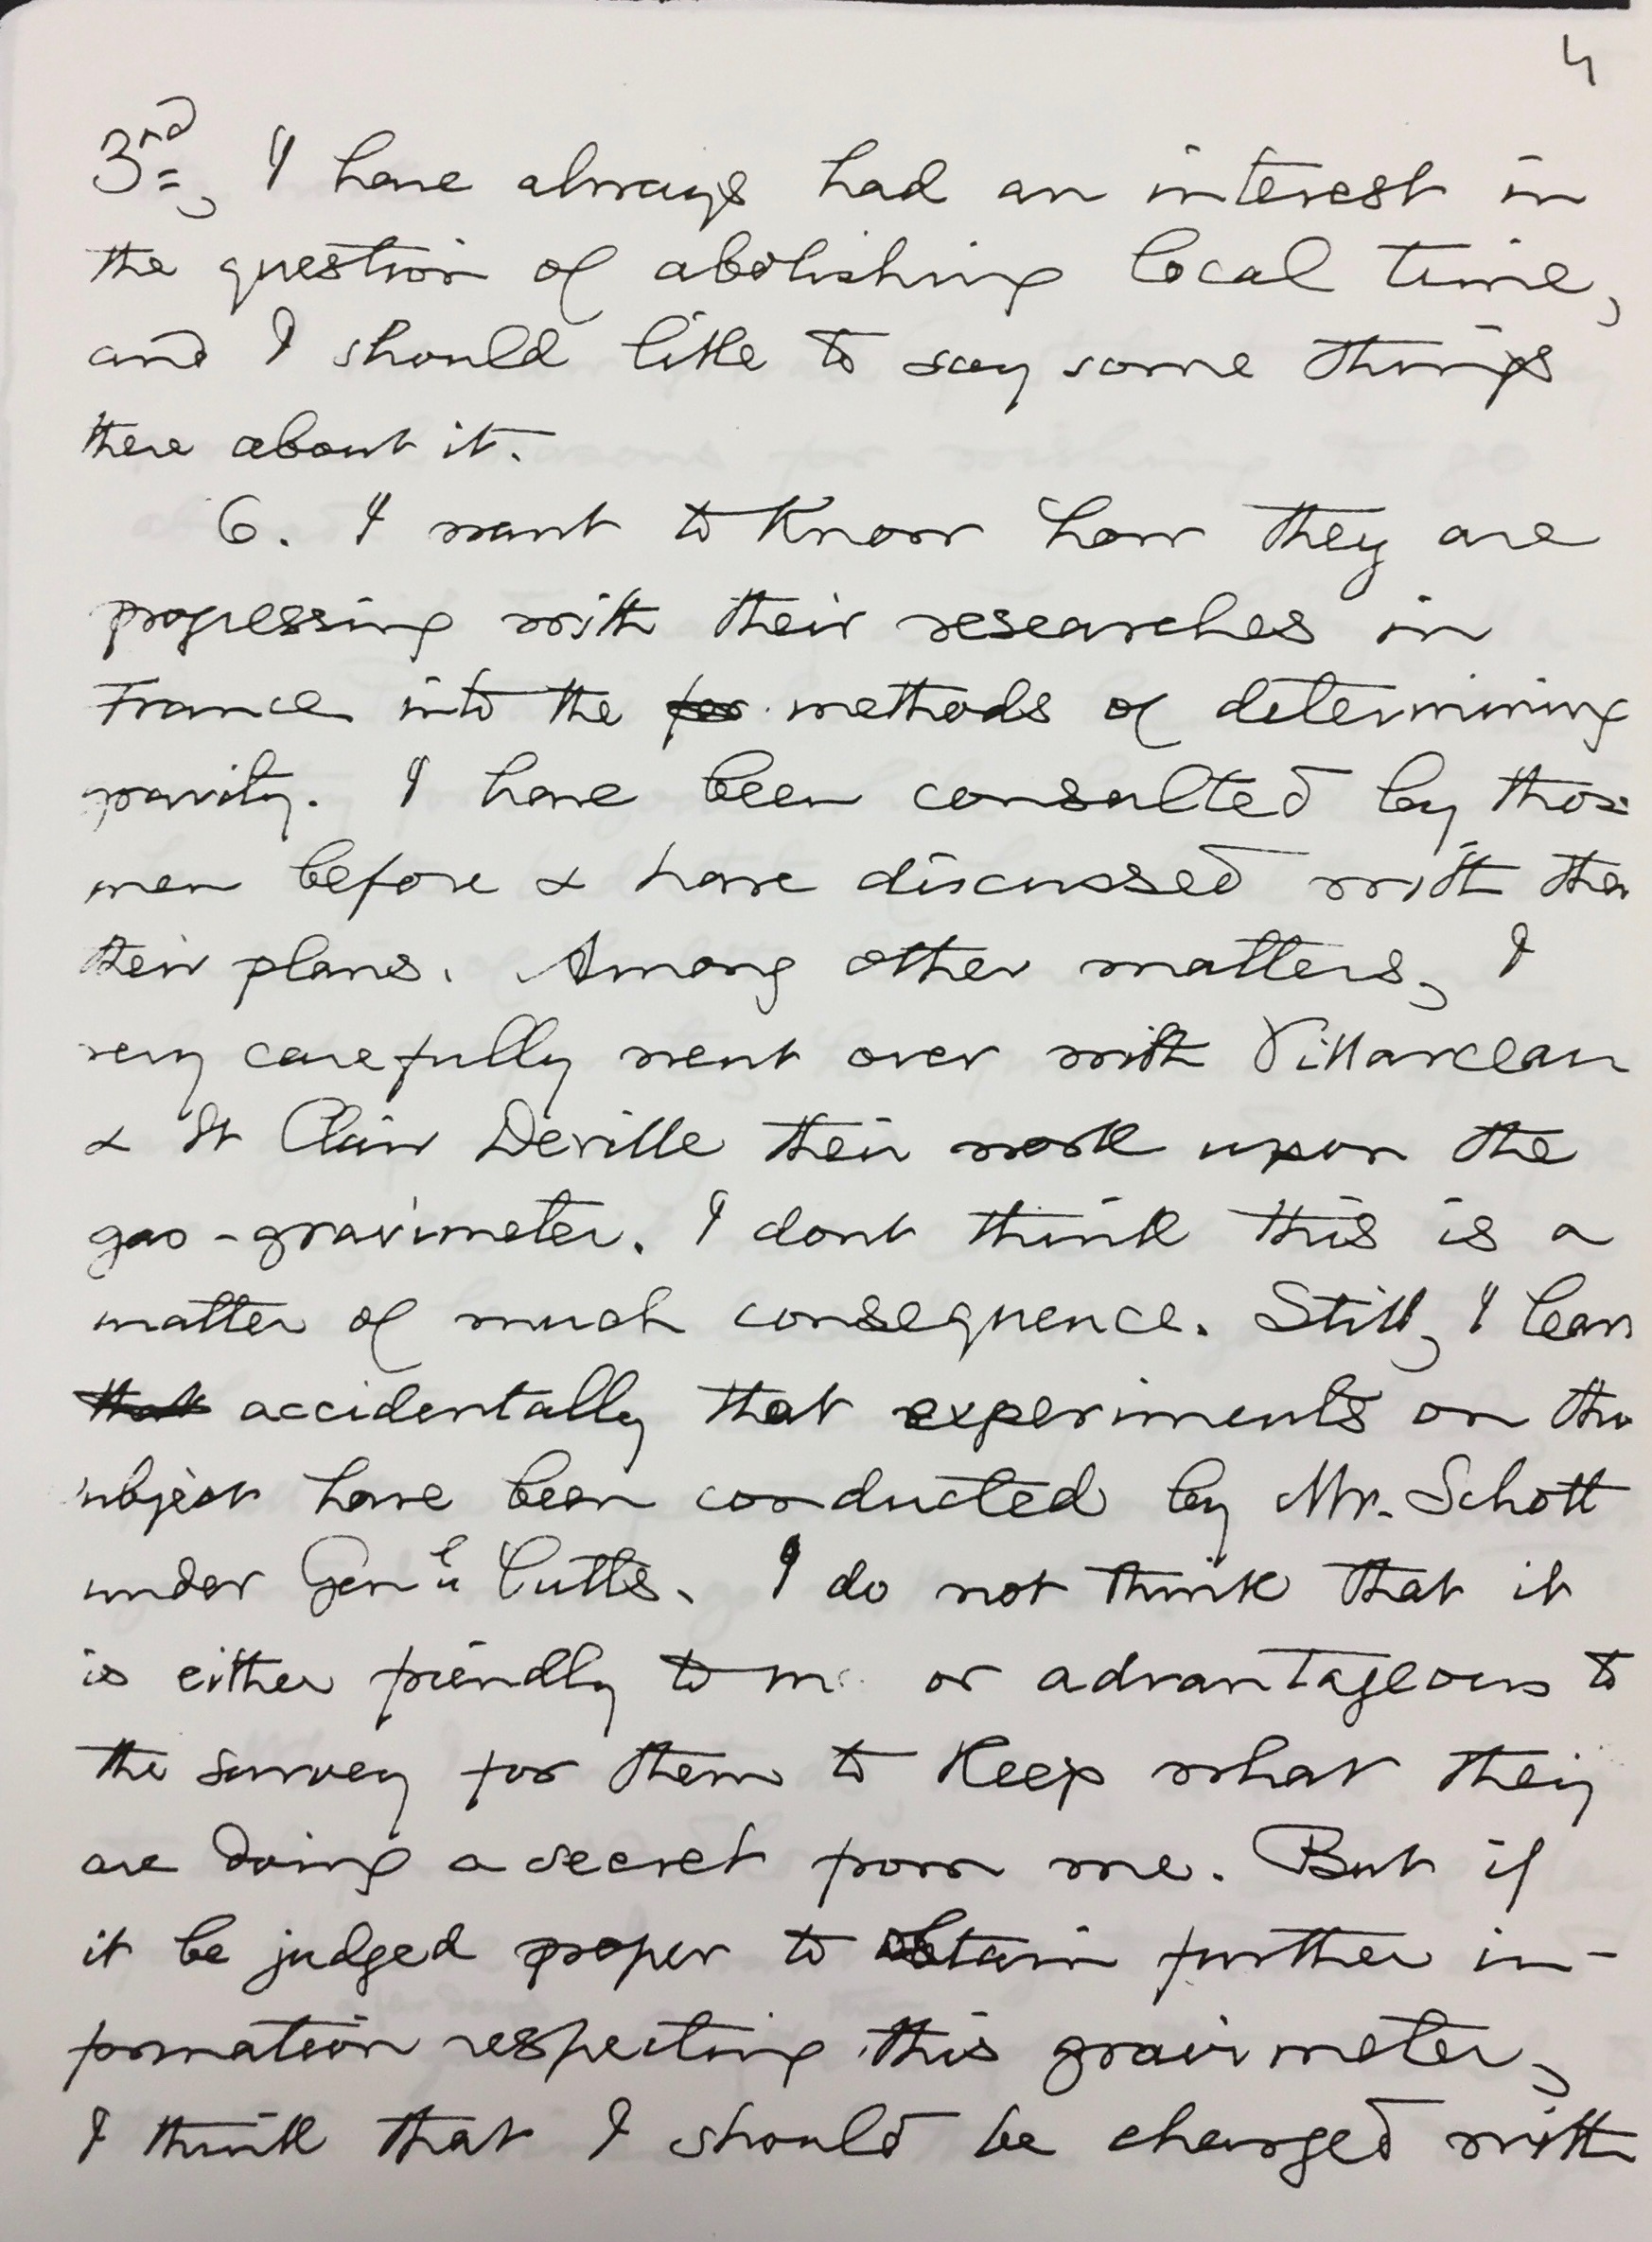 4
3rd, I have always had an interest in
the question of abolishing local time,
and I should like to say some things
there about it.
6. I want to know how they are
progressing with their researches in
France into the for methods of determining
gravity. I have been consulted by those
men before & have discussed with them
their plans. Among other matters, I
very carefully went over with Villarceau
& St Clair Deville their work upon the
gas-gravimeter. I dont think this is a
matter of much consequence. Still, I learn
that accidentally that experiments on this
subject have been conducted by Mr. Schott
under Gen'l Cutts. I do not think that it
is either friendly to me or advantageous to
the survey for them to keep what they
are doing a secret from me. But if
it be judged proper to obtain further in-
formation respecting this gravimeter,
I think that I should be charged with